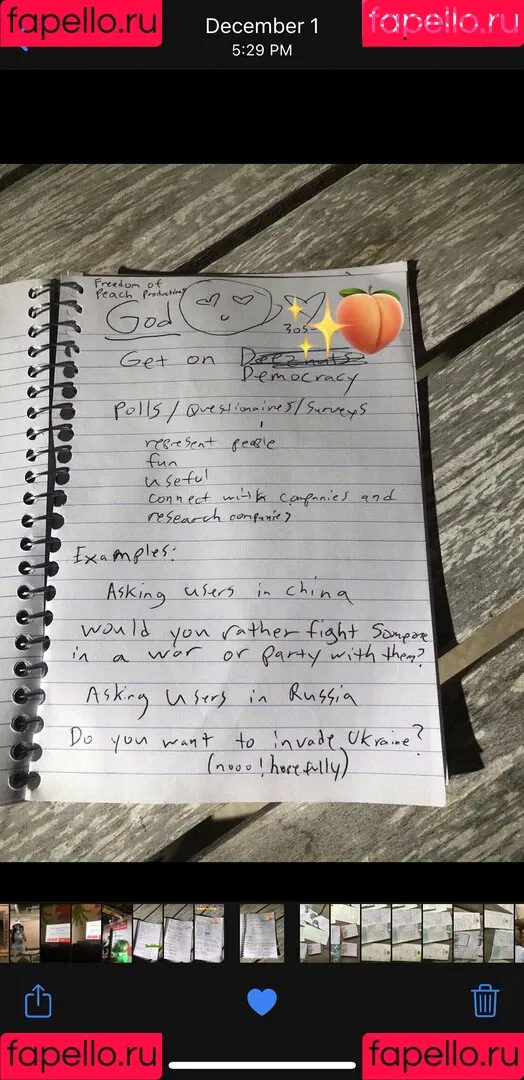 fapello.ru
December 1
fapello.ru
5:29 PM
Freedom of
Peach Productions
God
305
Get on Deeznuts
Democracy
Polls / Questionaires / Surveys
represent people
fun
useful
connect with companies and
research companies
Examples:
Asking users in china
would you rather fight someone
in a war or party with them?
Asking users in Russia
Do you want to invade Ukraine?
(nooo! hopefully)
fapello.ru
fapello.ru